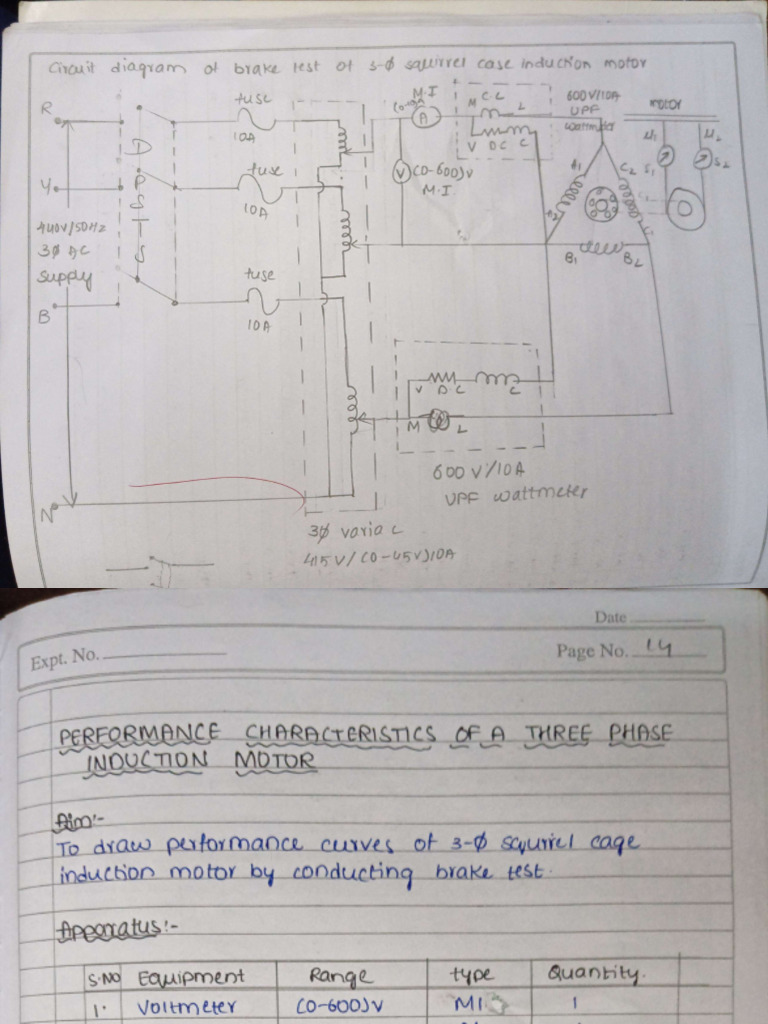 Circuit diagram of brake test of 3-ϕ squirrel case induction motor
R
Y
B
N
440V/50Hz
3ϕ AC
supply
D
P
S
T
S
fuse
10A
fuse
10A
fuse
10A
M.I
A
V
(0-600)V
M.I
M C.C L
V P.C C
600V/10A
UPF
wattmeter
motor
A1
A2
C2
B1
B2
S1
S2
V P.C C
M L
600 V/10A
UPF wattmeter
3ϕ variac
415V/(0-45V)10A
Date
Expt. No.
Page No. 14
PERFORMANCE CHARACTERISTICS OF A THREE PHASE
INDUCTION MOTOR
Aim:-
To draw performance curves of 3-ϕ squirrel cage
induction motor by conducting brake test.
Apparatus:-
S.NO Equipment Range type Quantity.
1. Voltmeter (0-600)V MI 1